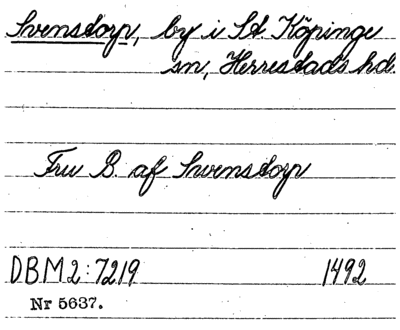 Svenstorp, by i St Köpinge
sn, Herrestads hd.
Fru B. af Swenstorp
DBM 2:7219 1492
Nr 5637.